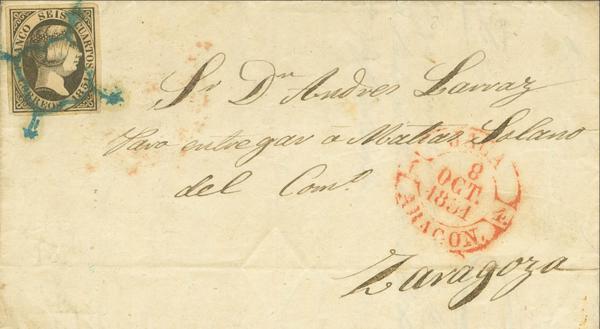 FRANCO SEIS CUARTOS
CORREOS 1851
Sr Dn Andres Larraz
Para entregar a Matias Solano
del Como.
8
OCT.
1851
ARAGON.
Zaragoza